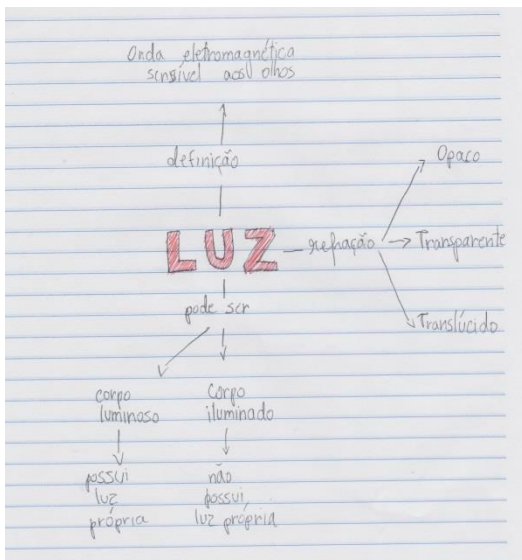 Onda eletromagnética
sensível aos olhos
definição
LUZ
refração
Opaco
Transparente
Translúcido
pode ser
corpo
luminoso
possui
luz
própria
Corpo
iluminado
não
possui
luz própria